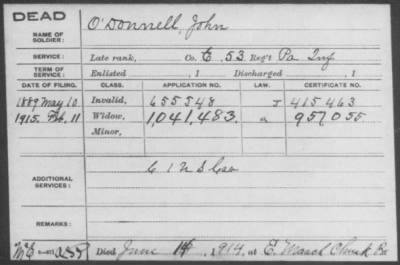 DEAD
NAME OF SOLDIER: O'Donnell, John
SERVICE: Late rank, Co. E, 53 Reg't Pa Inf
TERM OF SERVICE: Enlisted , 1 Discharged , 1
DATE OF FILING. CLASS. APPLICATION NO. LAW. CERTIFICATE NO.
1889 May 10 Invalid, 655548 I 415463
1915. Feb. 11 Widow, 1,041,483. 957,055
Minor,
ADDITIONAL SERVICES:
REMARKS:
Died June 14, 1914, at E. Mauch Chunk Pa